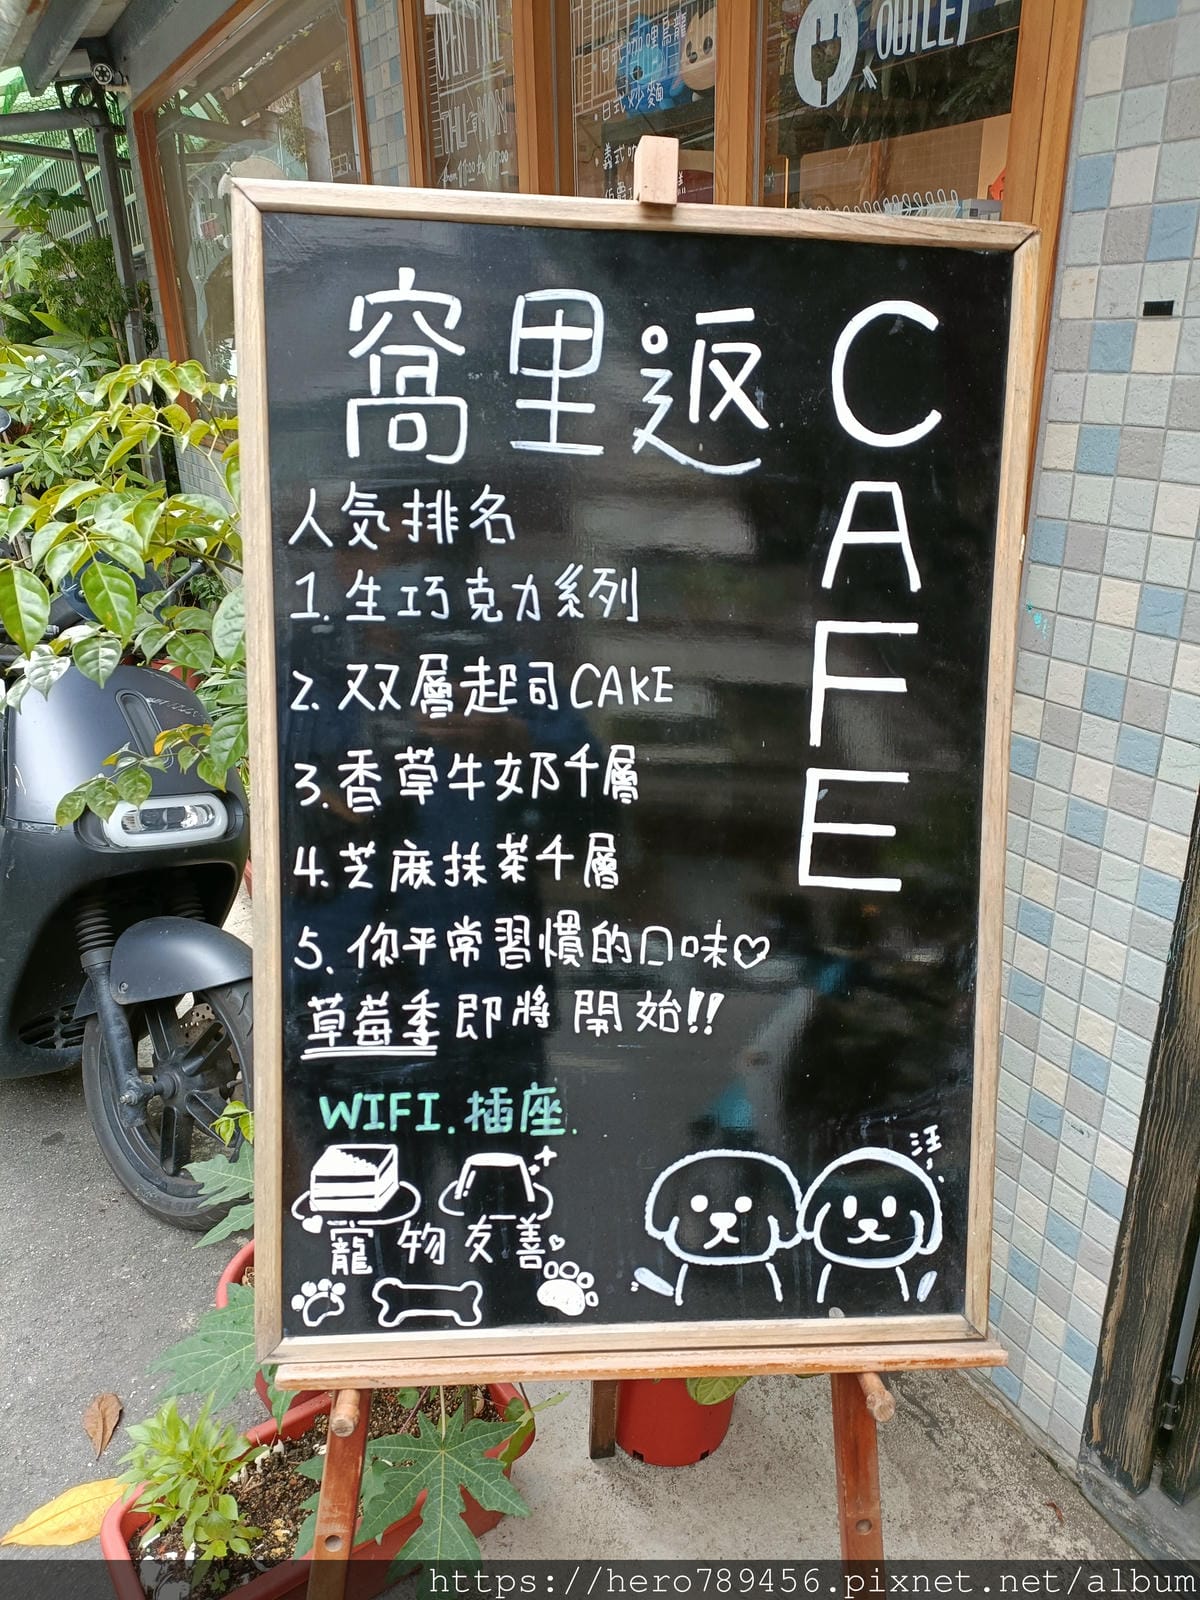 OPEN TIME
THU-MON
OUTLET
窩里返 CAFE
人気排名
1.生巧克力系列
2.双層起司CAKE
3.香草牛奶千層
4.芝麻抹茶千層
5.你平常習慣的口味♡
草莓季即將開始!!
WIFI.插座.
汪!
寵物友善
https://hero789456.pixnet.net/album